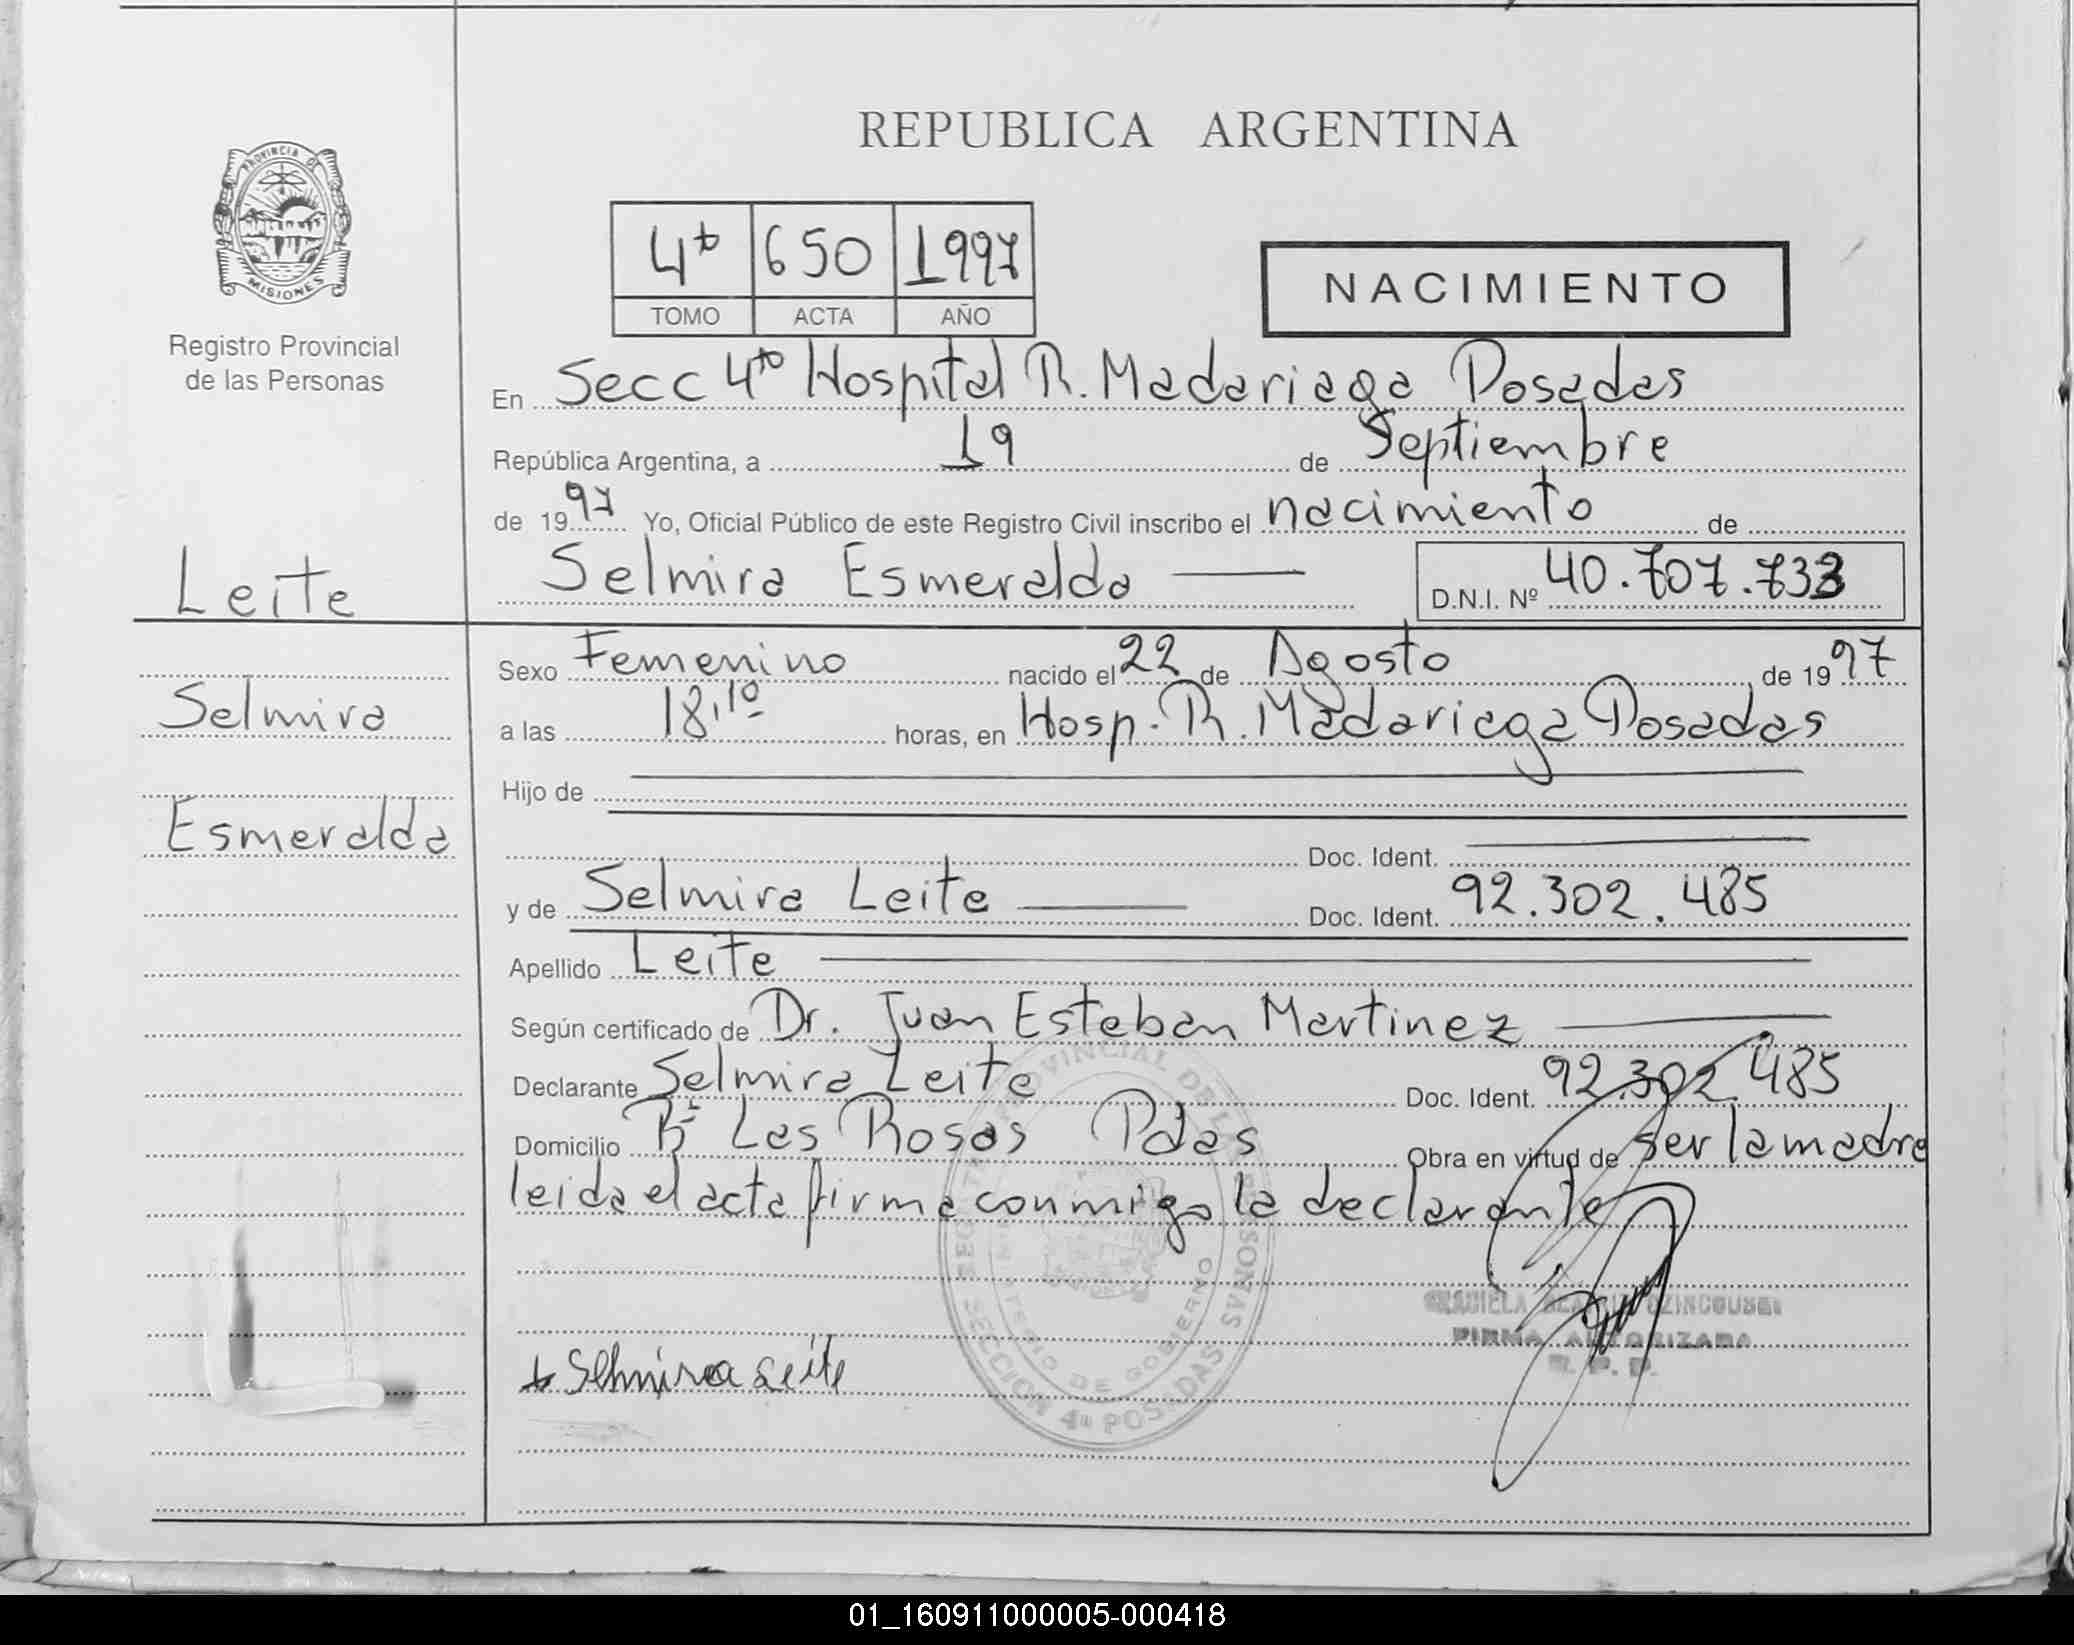 REPUBLICA ARGENTINA
PROVINCIA DE
MISIONES
Registro Provincial
de las Personas
4to 650 1997
TOMO ACTA AÑO
NACIMIENTO
En Secc 4to Hospital R. Madariaga Posadas
República Argentina, a 19 de Septiembre
de 1997 Yo, Oficial Público de este Registro Civil inscribo el nacimiento de
Selmira Esmeralda D.N.I. Nº 40.707.733
Leite
Selmira
Esmeralda
Sexo Femenino nacido el 22 de Agosto de 1997
a las 18,10 horas, en Hosp. R. Madariaga Posadas
Hijo de
Doc. Ident.
y de Selmira Leite Doc. Ident. 92.302.485
Apellido Leite
Según certificado de Dr. Juan Esteban Martinez
Declarante Selmira Leite Doc. Ident. 92.302.485
Domicilio Bº Las Rosas Pdas Obra en virtud de ser la madre
leida el acta firma conmigo la declarante
FIRMA AUTORIZADA
Selmira Leite
SECCION 4ª POSADAS
01_160911000005-000418